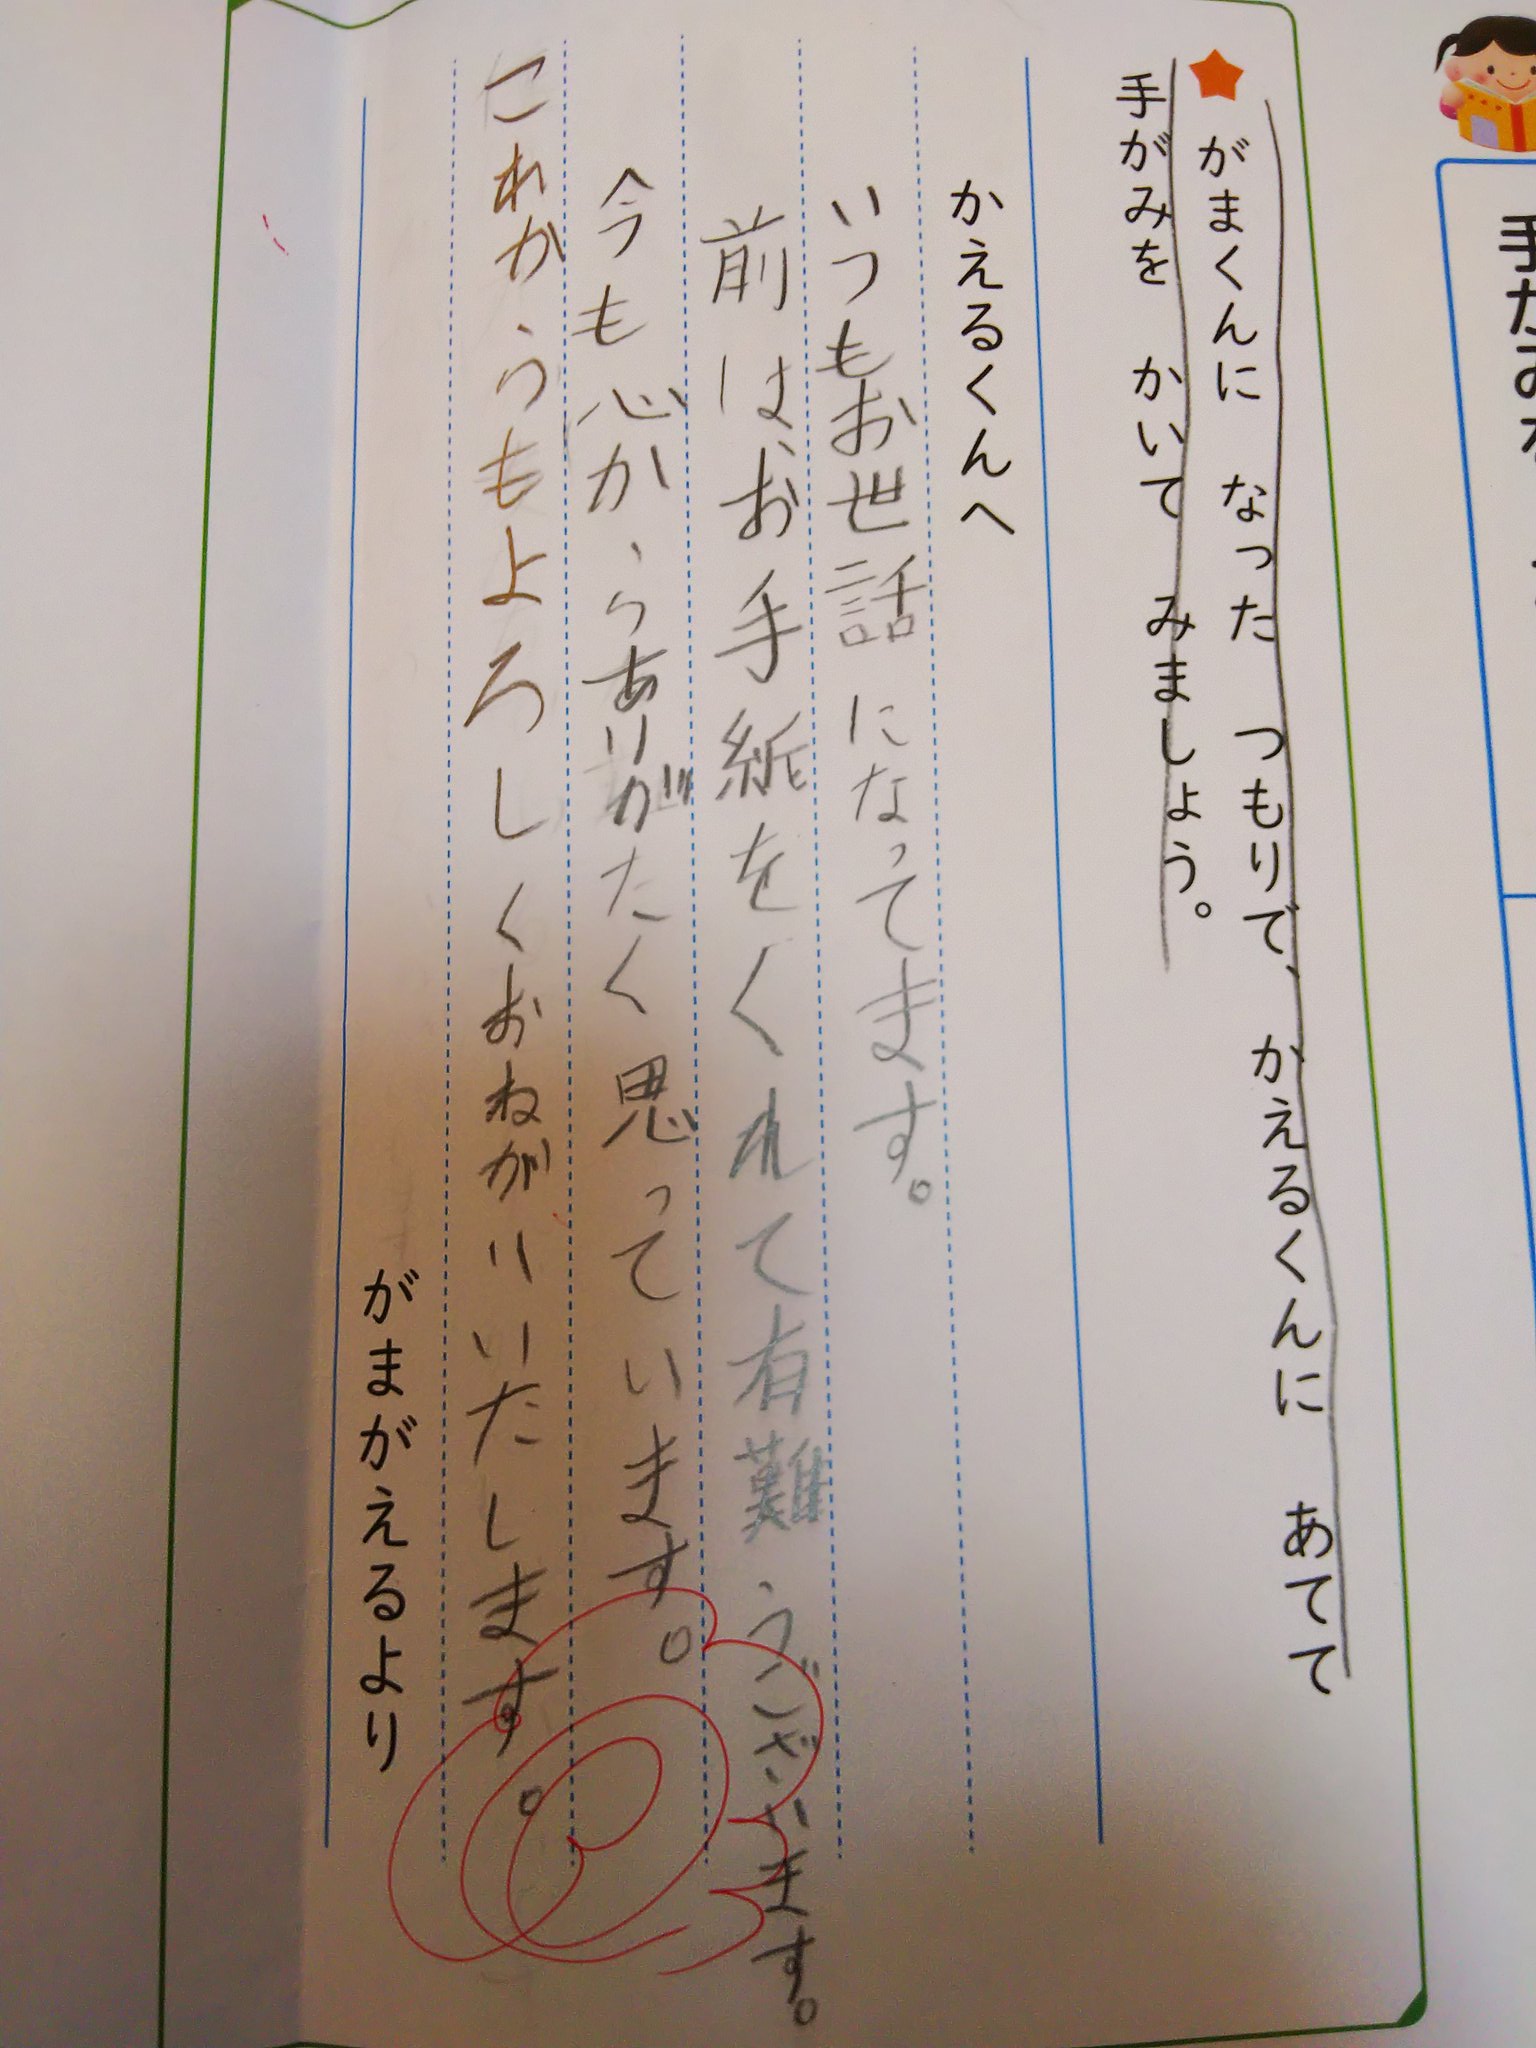 ★がまくんに なった つもりで、かえるくんに あてて
手がみを かいて みましょう。
かえるくんへ
いつもお世話になってます。
前は、お手紙をくれて有難うございます。
今も心からありがたく思っています。
これからもよろしくおねがいいたします。
がまがえるより